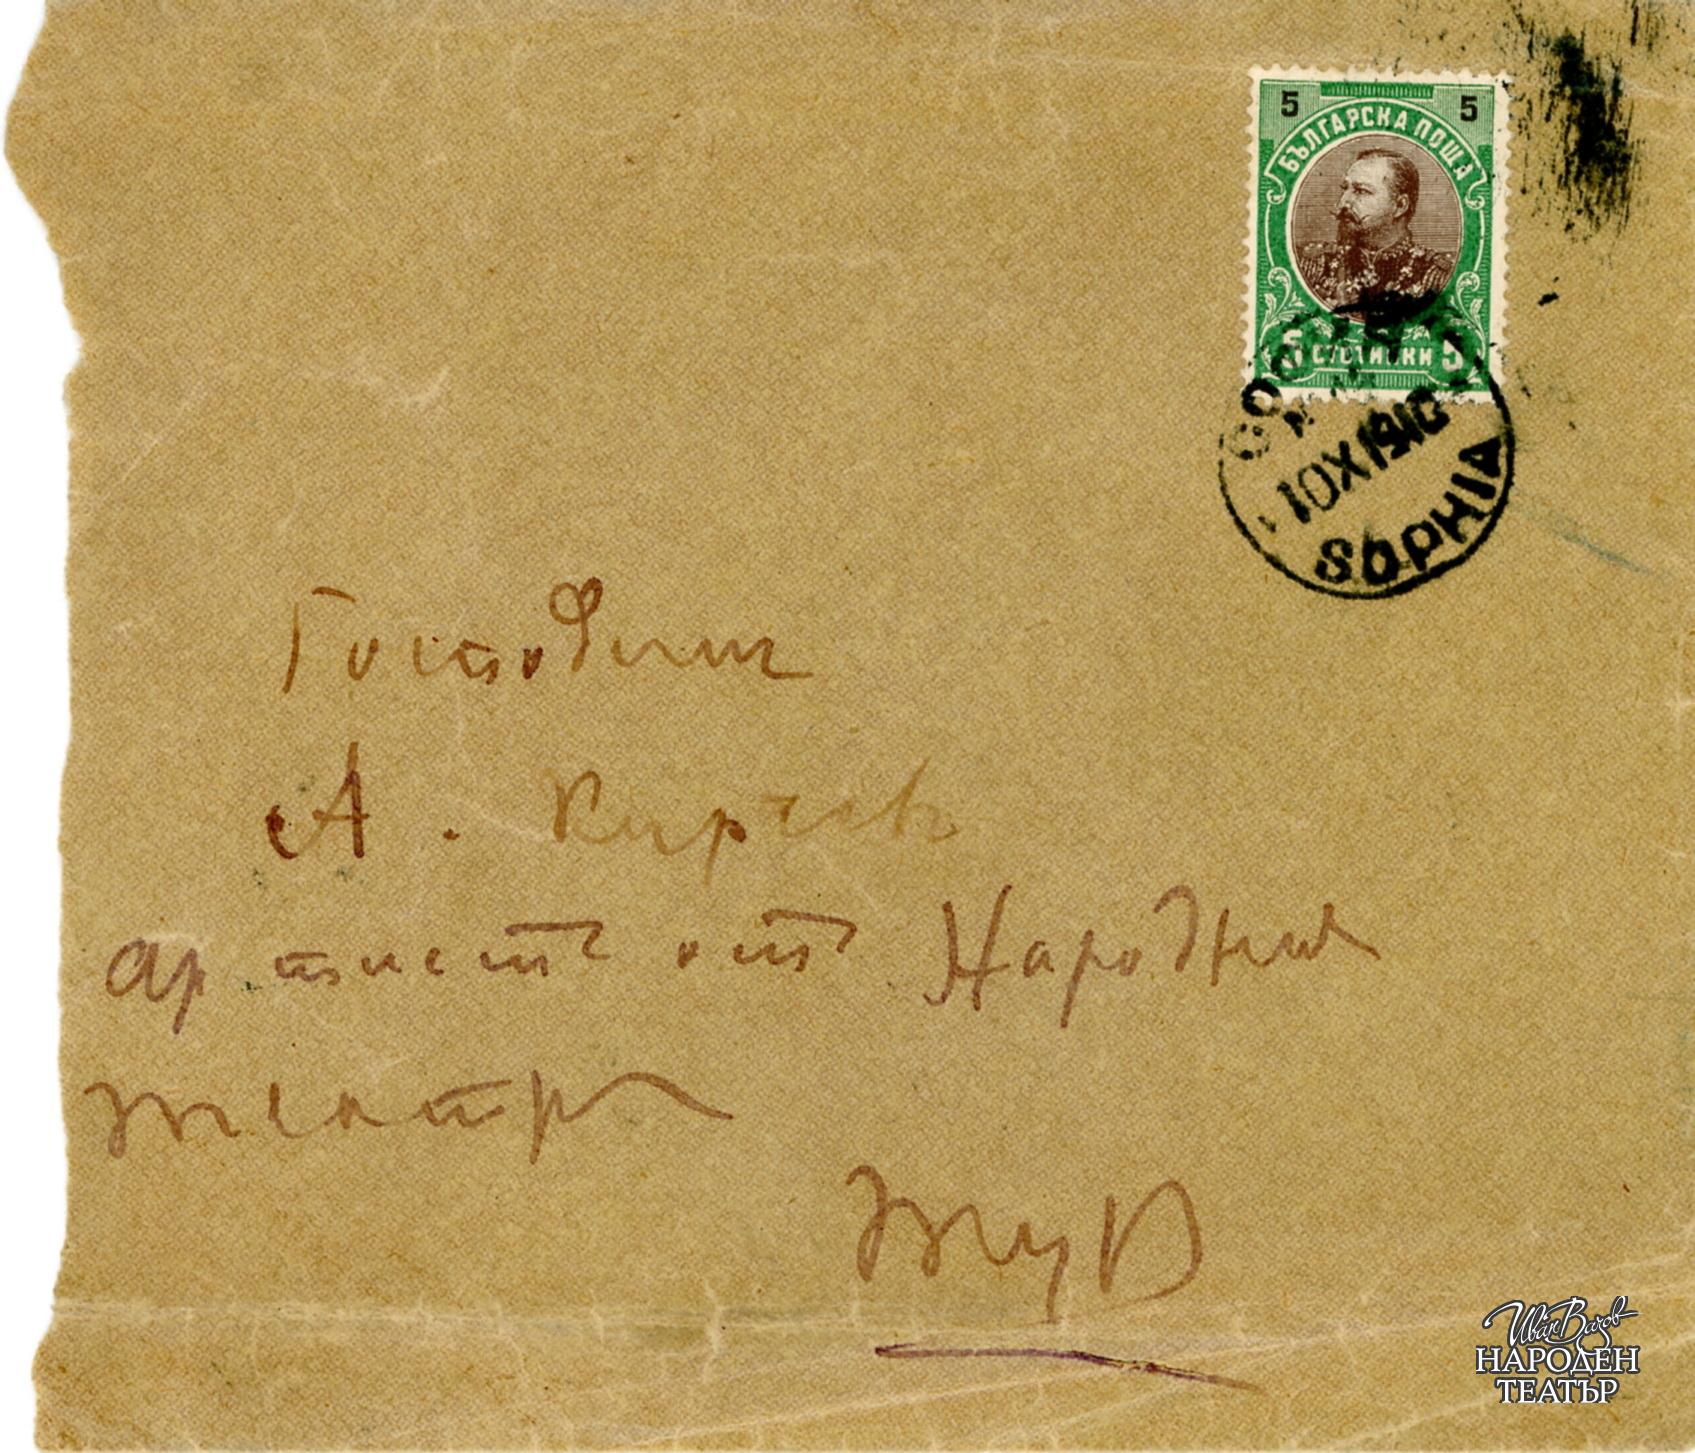 5 5
БЪЛГАРСКА ПОЩА
5 СТОТИНКИ 5
10 XI 1910
SOPHIA
Господинъ
А. Кирчевъ
артистъ отъ Народния
театръ
тук
Иван Вазов
НАРОДЕН
ТЕАТЪР